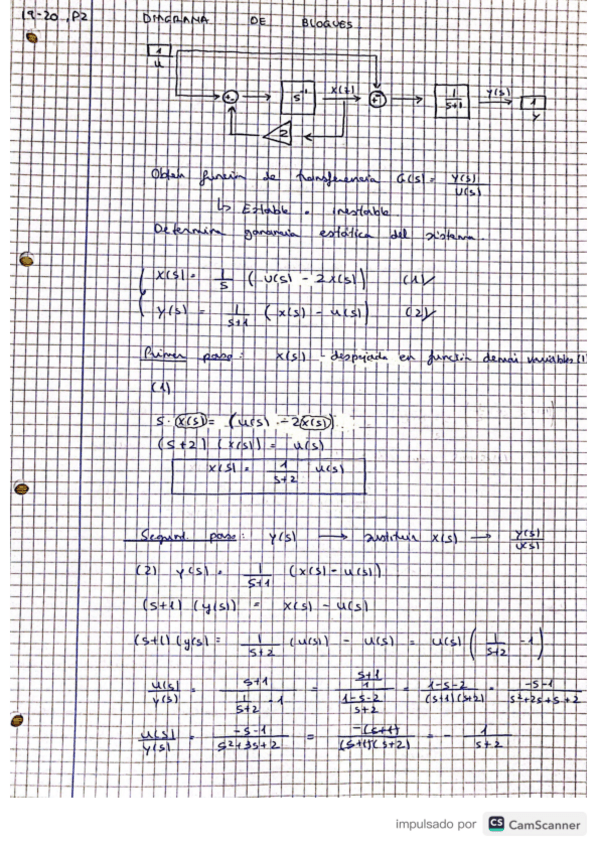 19-20, P2 DIAGRAMA DE BLOQUES
1
u
s⁻¹ x(s) 1/(s+1) y(s) 1
y
2
Obten función de transferencia G(s) = Y(s)/U(s)
↳ Estable o inestable
Determina ganancia estática del sistema.
x(s) = 1/s (u(s) - 2x(s)) (1)
y(s) = 1/(s+1) (x(s) - u(s)) (2)
Primer paso: x(s) despejada en función demás variables (1)
(1)
s · x(s) = (u(s) - 2x(s))
(s+2) (x(s)) = u(s)
x(s) = 1/(s+2) u(s)
Segund. paso: y(s) → sustituir x(s) → y(s)/u(s)
(2) y(s) = 1/(s+1) (x(s) - u(s))
(s+1) (y(s)) = x(s) - u(s)
(s+1) (y(s) = 1/(s+2) (u(s)) - u(s) = u(s) (1/(s+2) - 1)
u(s)/y(s) = (s+1)/(1/(s+2) - 1) = ((s+1)/1)/((1-s-2)/(s+2)) = (1-s-2)/((s+1)(s+2)) = (-s-1)/(s²+2s+s+2)
u(s)/y(s) = (-s-1)/(s²+3s+2) = (-(s+1))/((s+1)(s+2)) = - 1/(s+2)
impulsado por CS CamScanner